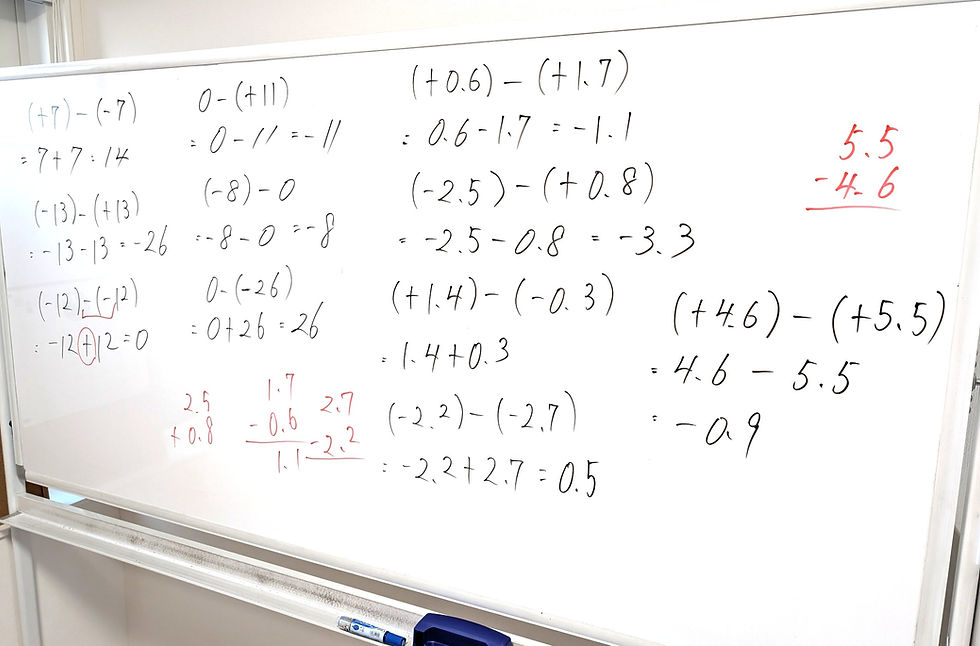 (+7)-(-7)
=7+7=14
(-13)-(+13)
=-13-13=-26
(-12)-(-12)
=-12+12=0
0-(+11)
=0-11=-11
(-8)-0
=-8-0=-8
0-(-26)
=0+26=26
2.5
+0.8
1.7
-0.6
1.1
2.7
-2.2
(+0.6)-(+1.7)
=0.6-1.7=-1.1
(-2.5)-(+0.8)
=-2.5-0.8=-3.3
(+1.4)-(-0.3)
=1.4+0.3
(-2.2)-(-2.7)
=-2.2+2.7=0.5
5.5
-4.6
(+4.6)-(+5.5)
=4.6-5.5
=-0.9